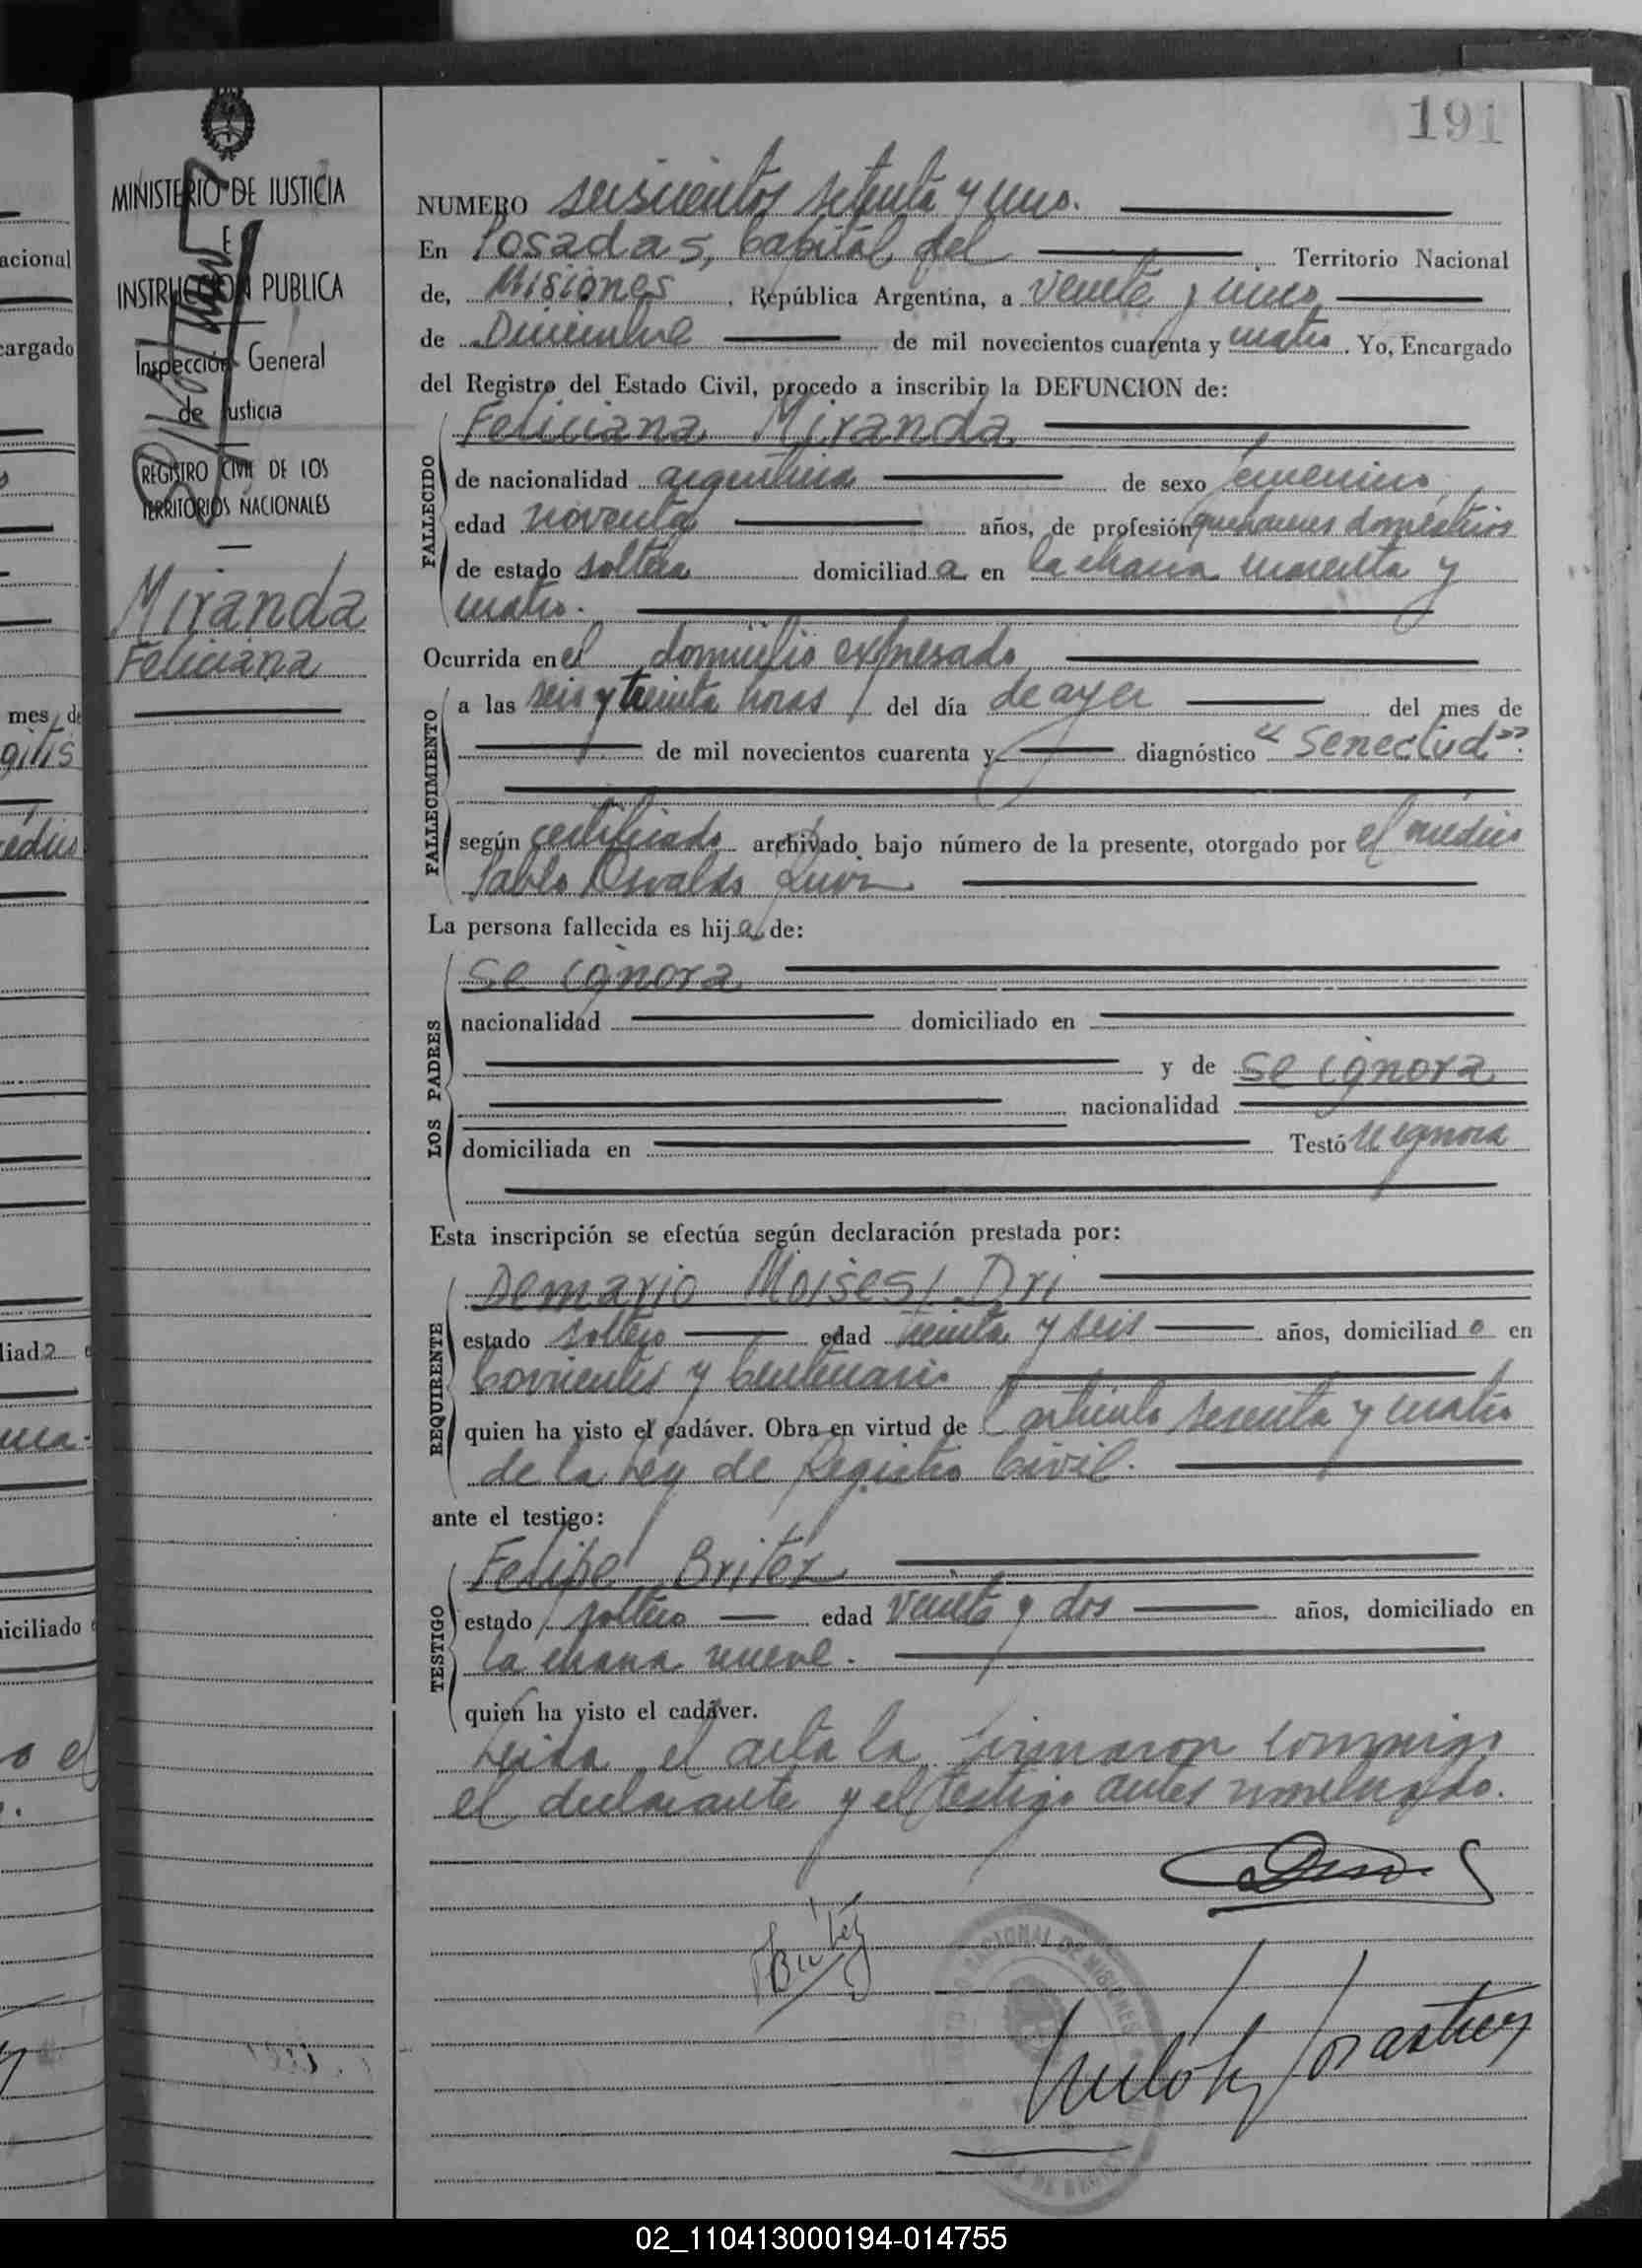 191
MINISTERIO DE JUSTICIA
E
INSTRUCCION PUBLICA
Inspección General
de Justicia
REGISTRO CIVIL DE LOS
TERRITORIOS NACIONALES
Miranda
Feliciana
NUMERO seiscientos setenta y uno.
En Posadas, Capital del Territorio Nacional
de, Misiones, República Argentina, a veinte y uno
de Diciembre de mil novecientos cuarenta y cuatro. Yo, Encargado
del Registro del Estado Civil, procedo a inscribir la DEFUNCION de:
FALLECIDO
Feliciana Miranda
de nacionalidad argentina de sexo femenino,
edad noventa años, de profesión quehaceres domésticos
de estado soltera domiciliada en la chacra cuarenta y
cuatro.
Ocurrida en el domicilio expresado
FALLECIMIENTO
a las seis y treinta horas del día de ayer del mes de
de mil novecientos cuarenta y diagnóstico "Senectud".
según certificado archivado bajo número de la presente, otorgado por el médico
Pablo Osvaldo
La persona fallecida es hija de:
LOS PADRES
se ignora
nacionalidad domiciliado en
y de se ignora
nacionalidad
domiciliada en Testó se ignora
Esta inscripción se efectúa según declaración prestada por:
REQUIRENTE
Demario Moises Dri
estado soltero edad treinta y seis años, domiciliado en
Corrientes y Centenario
quien ha visto el cadáver. Obra en virtud de l artículo sesenta y cuatro
de la Ley de Registro Civil.
ante el testigo:
TESTIGO
Felipe Britez
estado soltero edad veinte y dos años, domiciliado en
la chacra nueve.
quien ha visto el cadáver.
Leida el acta la firmaron conmigo
el declarante y el testigo antes nombrado.
FBritez
mes de
gitis
acional
cargado
médico
liada e
iciliado
02_110413000194-014755